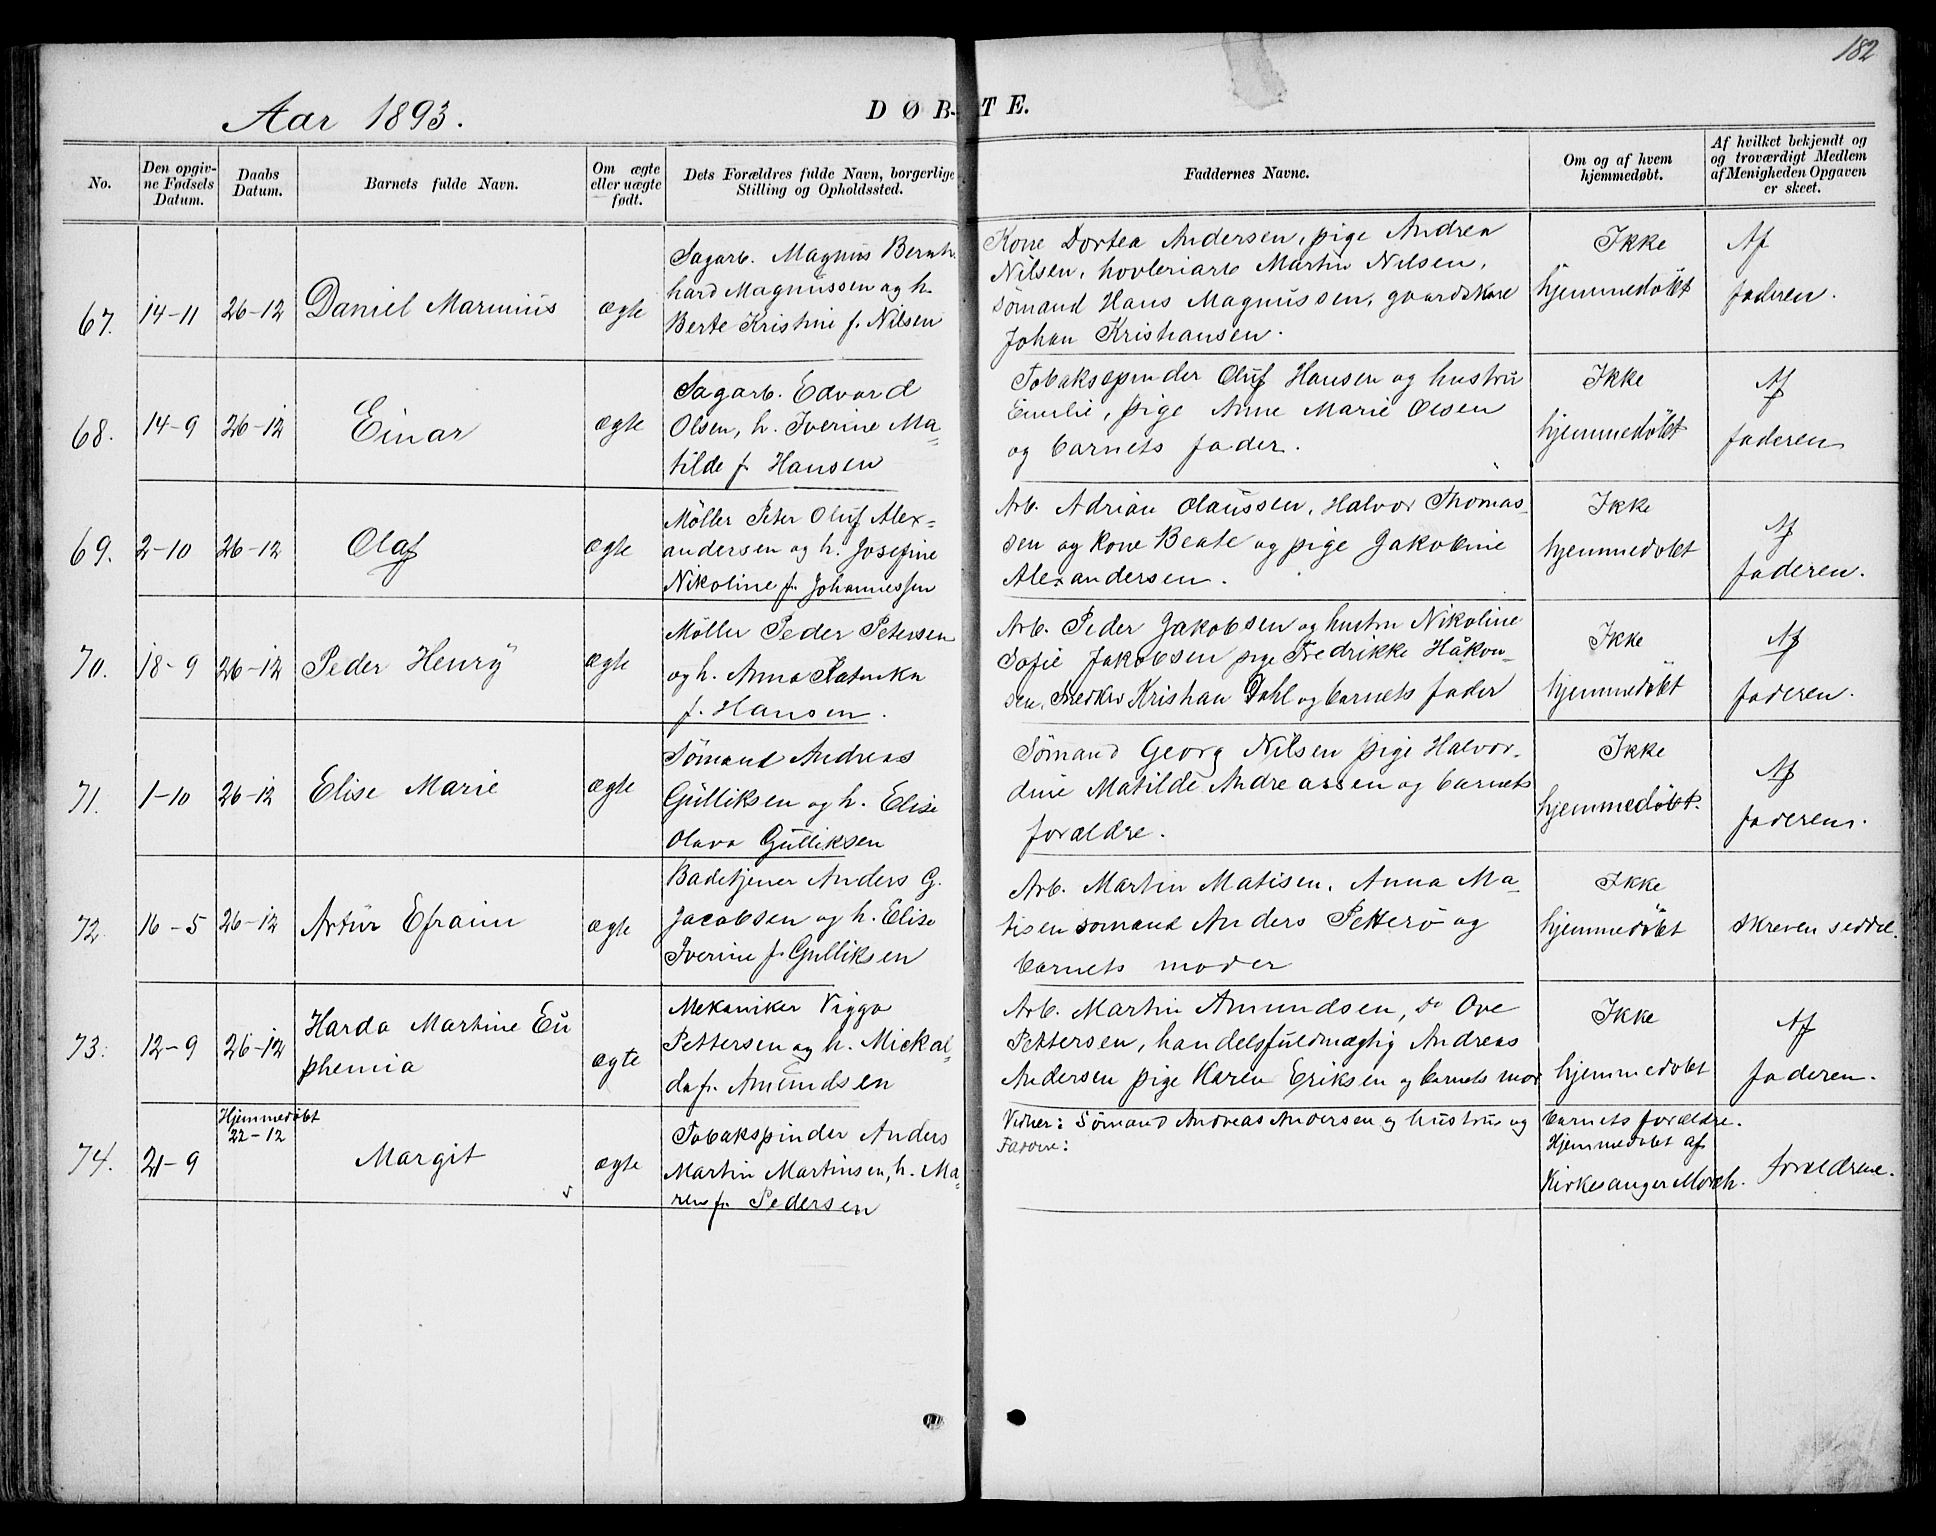 182
Aar 1893.
DØBTE.
No.
Den opgiv-
ne Fødsels
Datum.
Daabs
Datum.
Barnets fulde Navn.
Om ægte
eller uægte
født.
Dets Forældres fulde Navn, borgerlige
Stilling og Opholdssted.
Faddernes Navne.
Om og af hvem
hjemmedøbt.
Af hvilket bekjendt og
og troværdigt Medlem
af Menigheden Opgaven
er skeet.
67. 14-11 26-12 Daniel Marinius ægte
Sagarb. Magnus Bernh
hard Magnussen og h.
Berte Kristine f. Nilsen
Kone Dortea Andersen, pige Andrea
Nilsen, hovleriarb Martin Nilsen,
sømand Hans Magnussen, gaardskare
Johan Kristiansen.
Ikke
hjemmedøbt
Af
faderen.
68. 14-9 26-12 Einar ægte
Sagarb. Edvard
Olsen, h. Iverine Ma=
tilde f Hansen
Tobakspinder Oluf Hansen og hustru
Emilie, pige Anne Marie Olsen
og barnets fader.
Ikke
hjemmedøbt
Af
faderen
69. 2-10 26-12 Olaf ægte
Møller Peter Oluf Alex=
andersen og h. Josefine
Nikoline f. Johannessen
Arb. Adrian Olaussen, Halvor Thomas=
sen og kone Beate og pige Jakobine
Alexandersen.
Ikke
hjemmedøbt
Af
faderen.
70. 18-9 26-12 Peder Henry ægte
Møller Peder Petersen
og h. Anna
f. Hansen.
Arb. Peder Jakobsen og hustru Nikoline
Sofie Jakobsen pige Fredrikke Håkon=
sen, Snedker Kristian Dahl og barnets fader
Ikke
hjemmedøbt
Af
faderen.
71. 1-10 26-12 Elise Marie ægte
Sømand Andreas
Gulliksen og h. Elise
Olava Gulliksen
Sømand Georg Nilsen pige Halvor=
dine Matilde Andreassen og barnets
forældre.
Ikke
hjemmedøbt.
Af
faderen.
72. 16-5 26-12 Artur Efraim ægte
Badetjener Anders G.
Jacobsen og h. Elise
Iverine f. Gulliksen
Arb. Martin Matisen, Anna Ma=
tisen sømand Anders Petterø og
barnets moder
Ikke
hjemmedøbt
skreven seddel.
73. 12-9 26-12 Harda Martine Eu
phemia ægte
Mekaniker Viggo
Pettersen og h. Mickal=
da f. Amundsen
Arb. Martin Amundsen, do Ove
Pettersen, handelsfuldmægtig Andreas
Andersen pige Karen Eriksen og barnets mor
Ikke
hjemmedøbt
Af
faderen.
74. 21-9 Hjemmedøbt
22-12 Margit ægte
Tobakspinder Anders
Martin Martinsen, h. Ma=
ren f. Pedersen
Vidner: Sømand Andreas Andersen og hustru og barnets forældre.
Faddere:
Hjemmedøbt af
Kirkesanger Mörch.
forældrene.